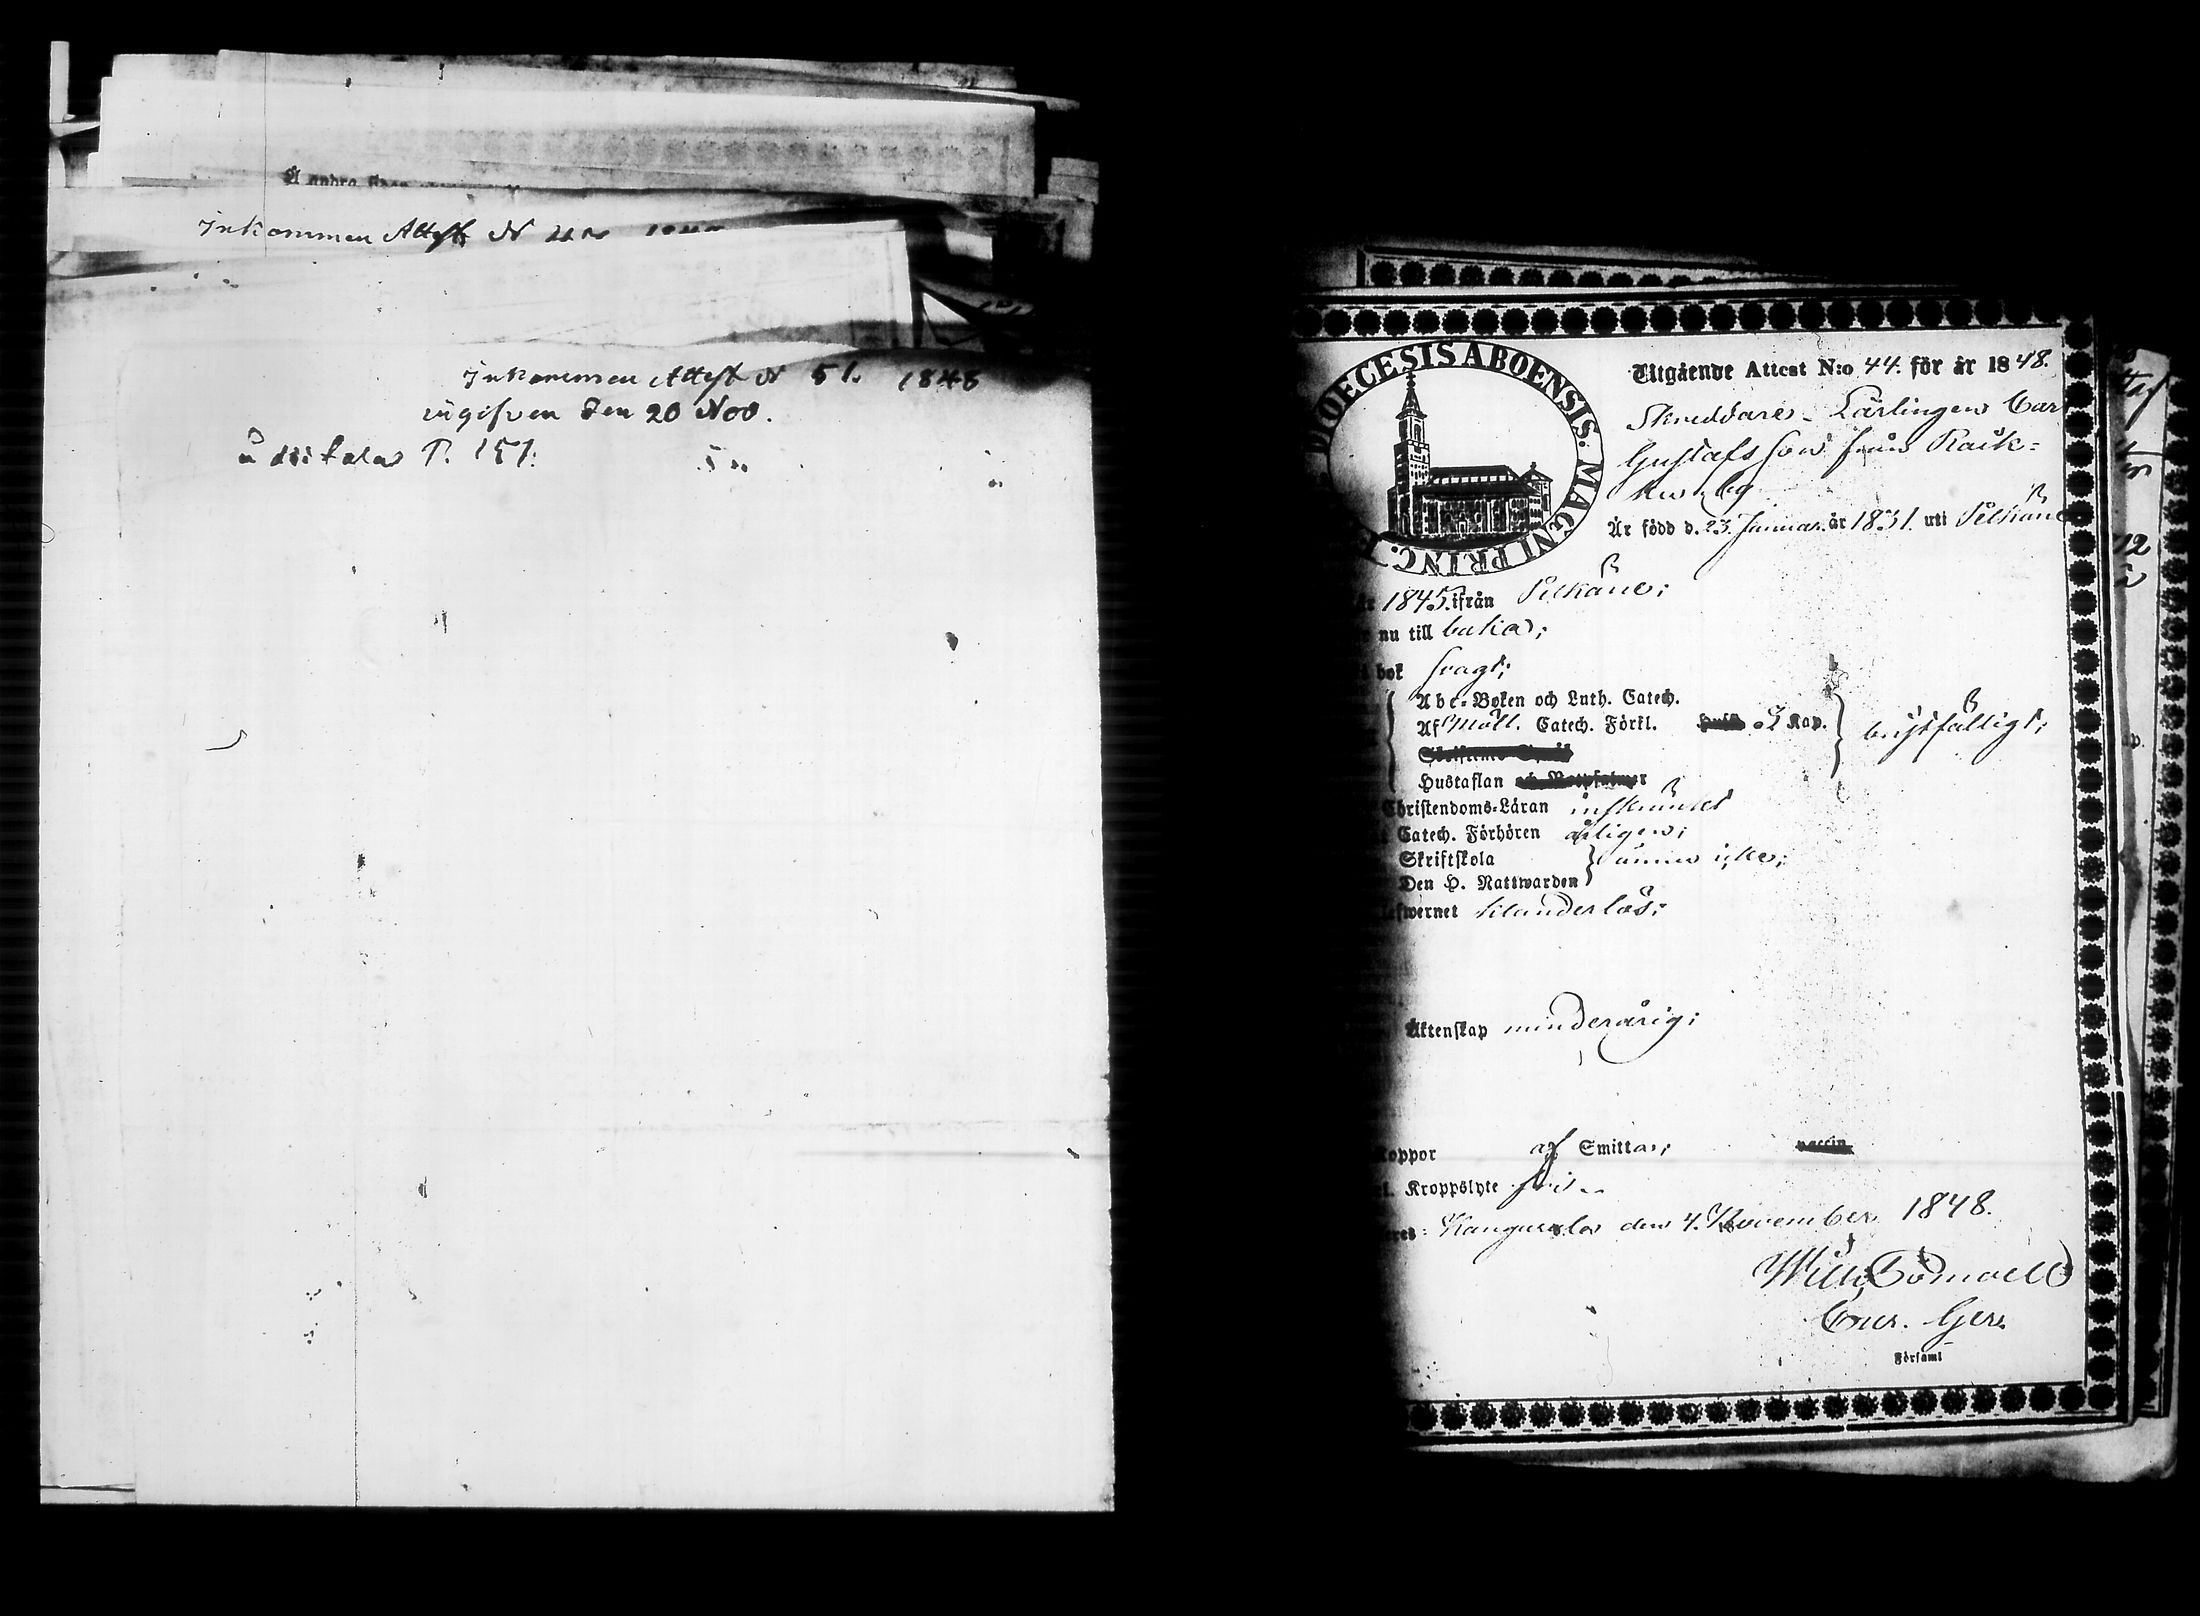 Å andra
Inkommen Attest N
Inkommen Attest N 51. 1848
ingifven den 20 Nov.
P. 151.
DIOECESIS ABOENSIS. MAGNI PRINC. F
Utgående Attest N:o 44. för år 1848.
Skreddare-Lärlingen Carl
Gustafsson från Raik-
Är född d. 23. Januar. år 1831. uti Pelkäne
år 1845. ifrån Pelkäne;
nu till baka;
bok svagt;
Abc-Boken och Luth. Catech.
Af Möll. Catech. Förkl. 2 Kap.
bristfälligt;
Hustaflan
Christendoms-Läran inskränkt
Catech. Förhören årligen;
Skriftskola
ännu icke;
Den H. Nattwarden
lefwernet klanderlös;
Äktenskap minderårig;
Koppor af Smitta; vaccin
Kroppslyte fri
Kangasala den 4. November 1848.
Församl